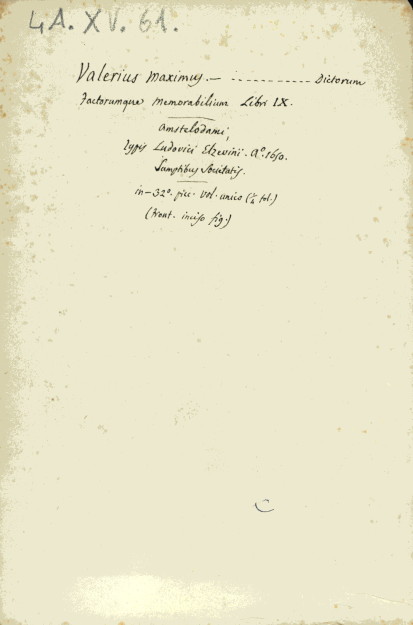 4A. XV. 61.
Valerius Maximus. — - - - - - - - - - - Dictorum
Factorumque Memorabilium Libri IX.
Amstelodami,
typis Ludovici Elzevirii. Aº. 1650.
Sumptibus Societatis.
in-32º. picc. vol. unico
(front. inciso fig.)